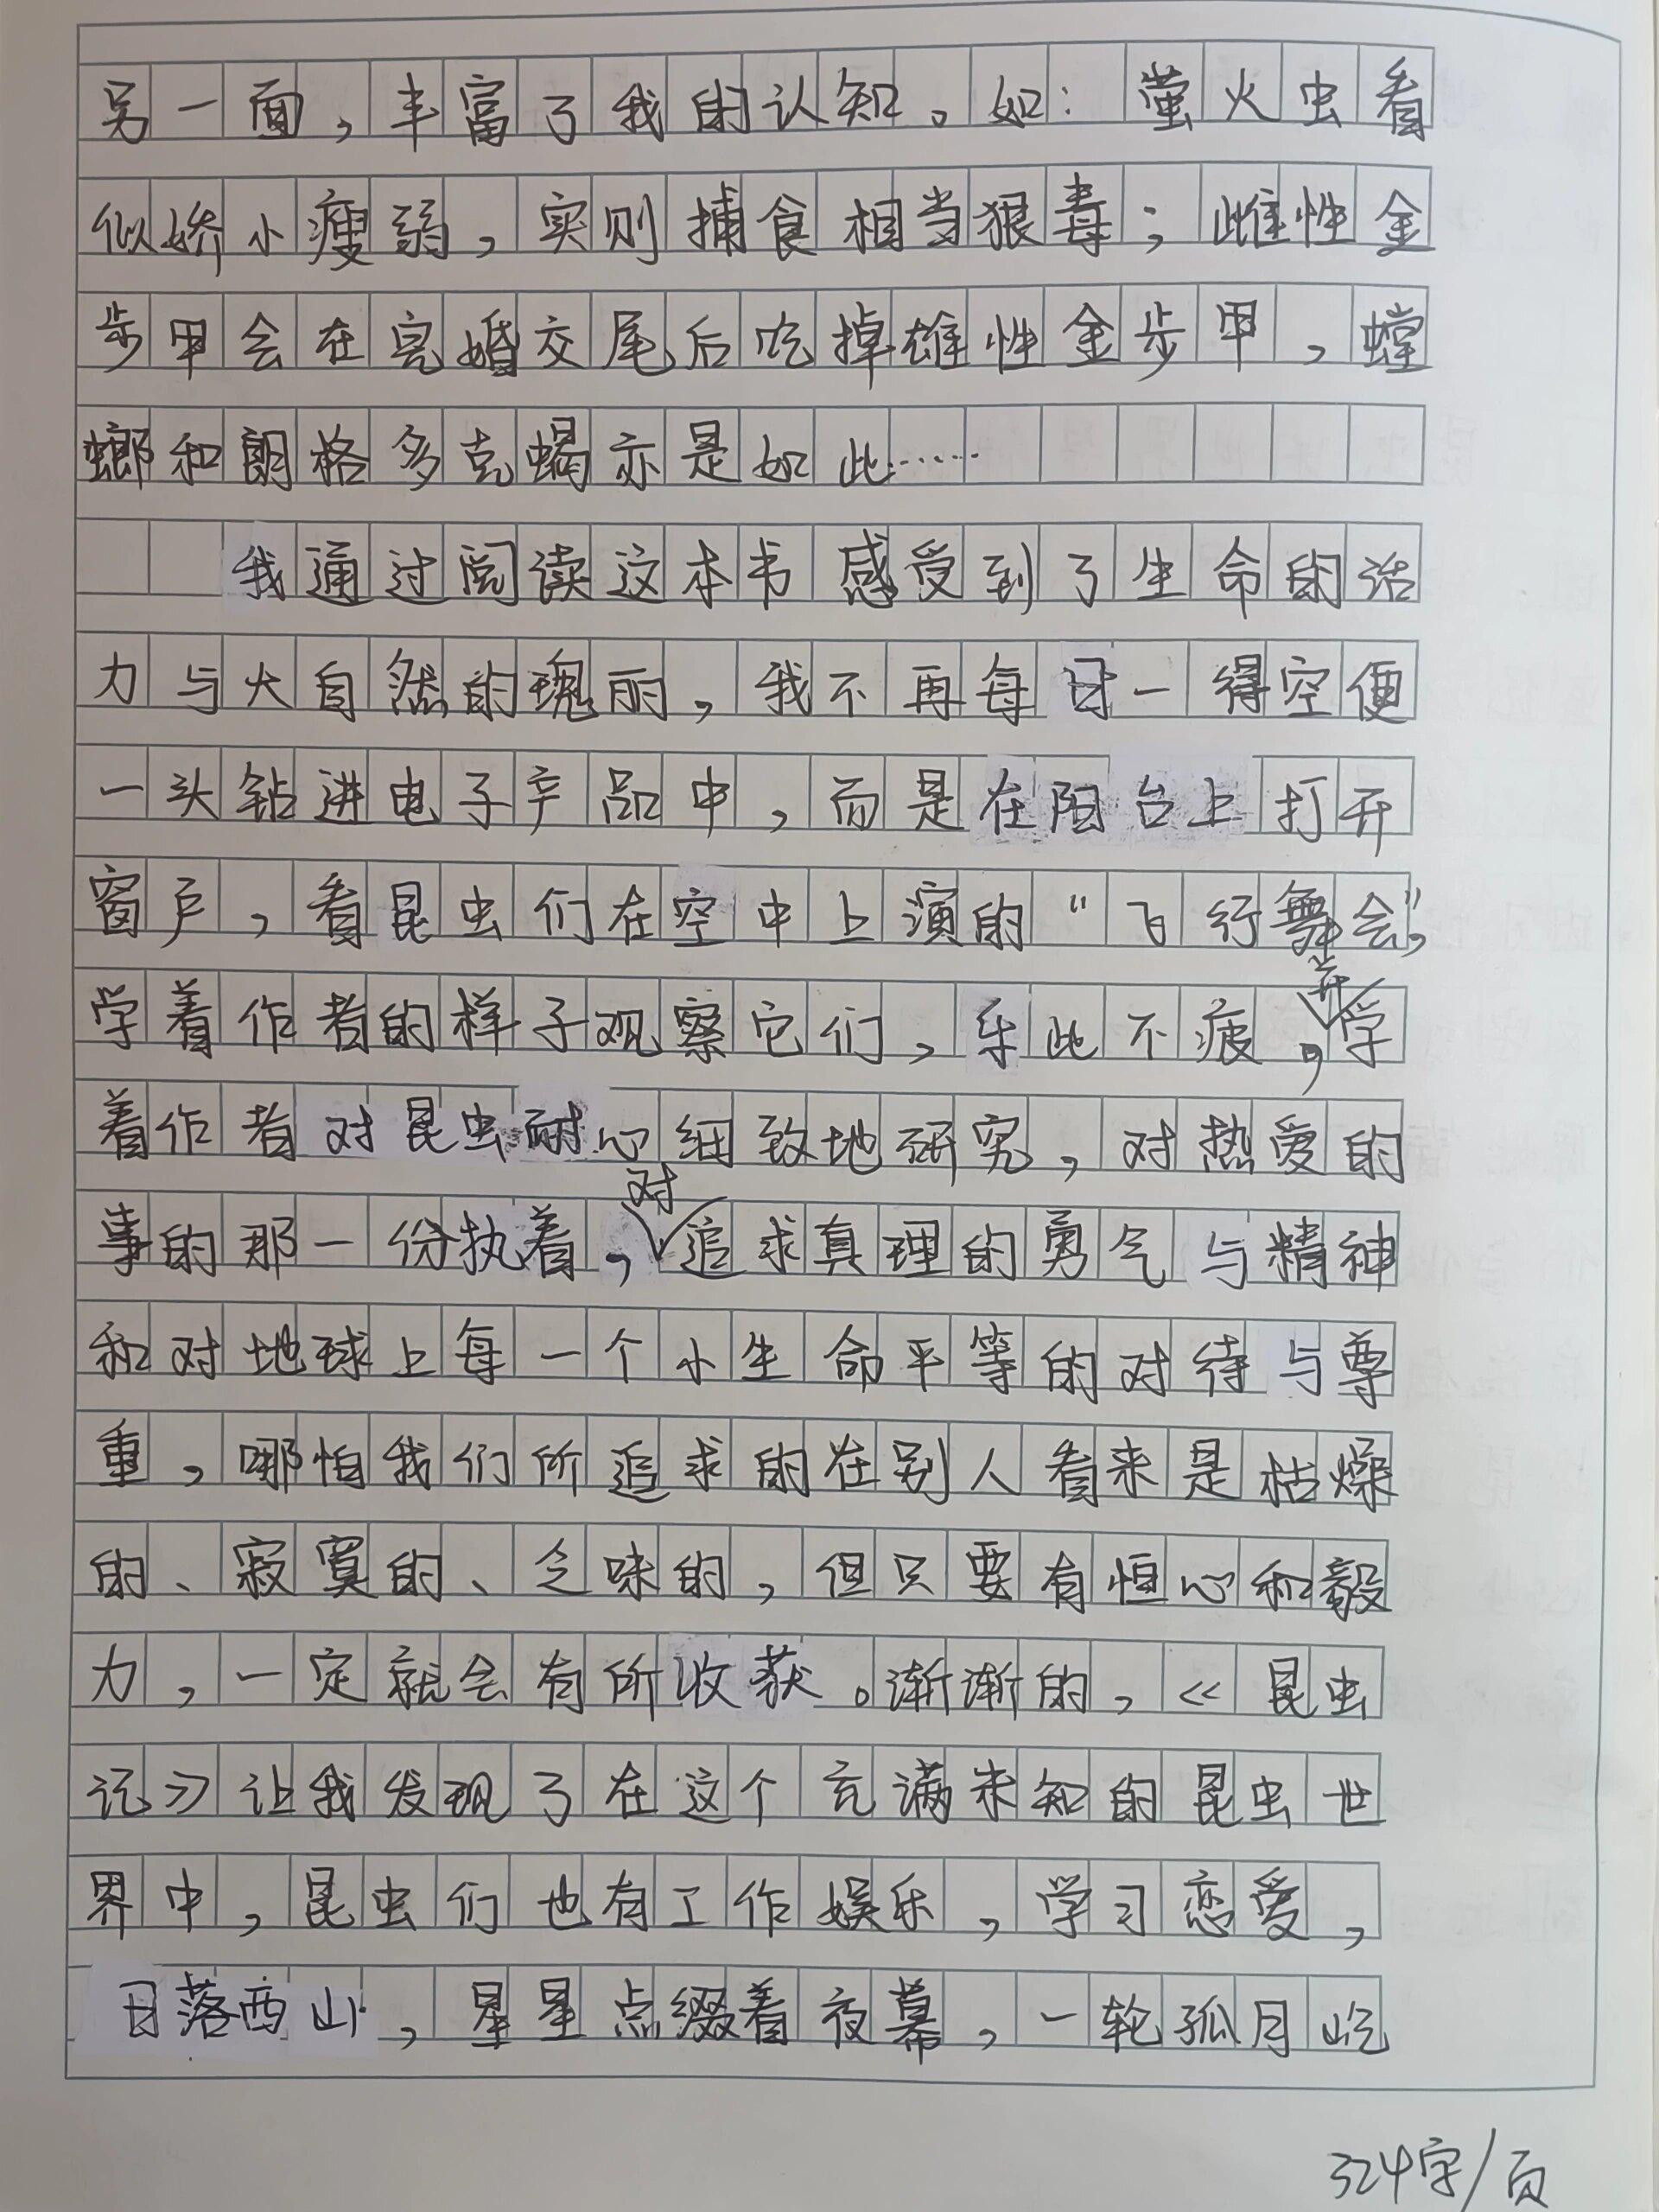 另一面，丰富了我的认知。如：萤火虫看
似娇小瘦弱，实则捕食相当狠毒；雌性金
步甲会在完婚交尾后吃掉雄性金步甲，螳
螂和朗格多克蝎亦是如此……
我通过阅读这本书感受到了生命的活
力与大自然的瑰丽，我不再每日一得空便
一头钻进电子产品中，而是在阳台上打开
窗户，看昆虫们在空中上演的“飞行舞会”，
学着作者的样子观察它们，乐此不疲，并学
着作者对昆虫耐心细致地研究，对热爱的
事的那一份执着，对追求真理的勇气与精神
和对地球上每一个小生命平等的对待与尊
重，哪怕我们所追求的在别人看来是枯燥
的、寂寞的、乏味的，但只要有恒心和毅
力，一定就会有所收获。渐渐的，《昆虫
记》让我发现了在这个充满未知的昆虫世
界中，昆虫们也有工作娱乐，学习恋爱，
日落西山，星星点缀着夜幕，一轮孤月屹
324字/页